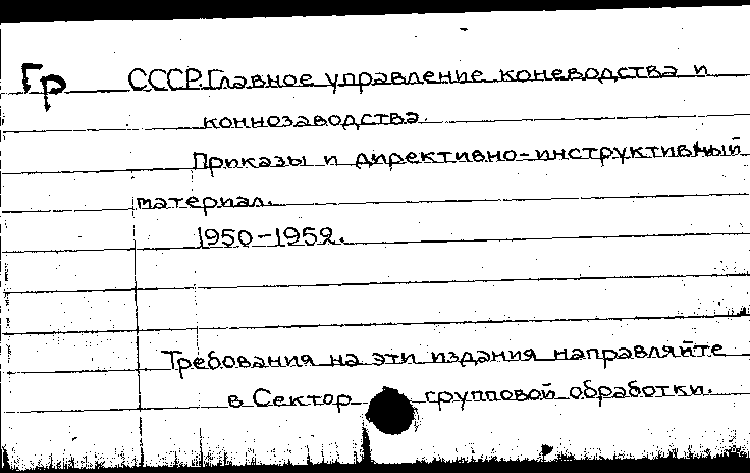 Гр СССР. Главное управление коневодства и
коннозаводства.
Приказы и директивно-инструктивный
материал.
1950-1952.
Требования на эти издания направляйте
в Сектор групповой обработки.